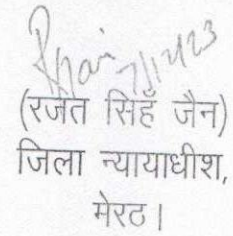 7/12/23
(रजत सिहँ जैन)
जिला न्यायाधीश,
मेरठ।